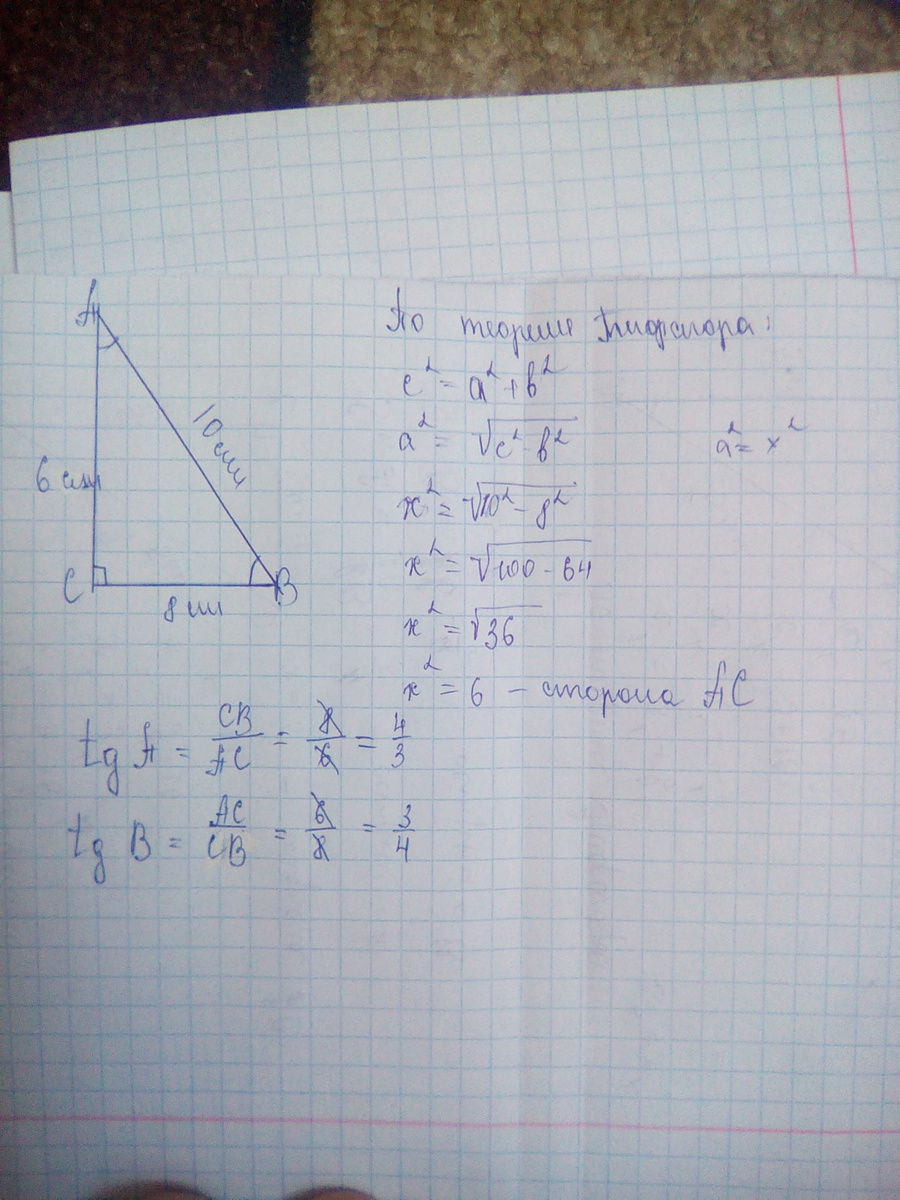 A
6 см
10 см
C
8 см
B
По теореме Пифагора:
c² = a² + b²
a² = √c² - b²
a² = x²
x² = √10² - 8²
x² = √100 - 64
x² = √36
x² = 6 - сторона AC
tg A = CB/AC = 8/6 = 4/3
tg B = AC/CB = 6/8 = 3/4